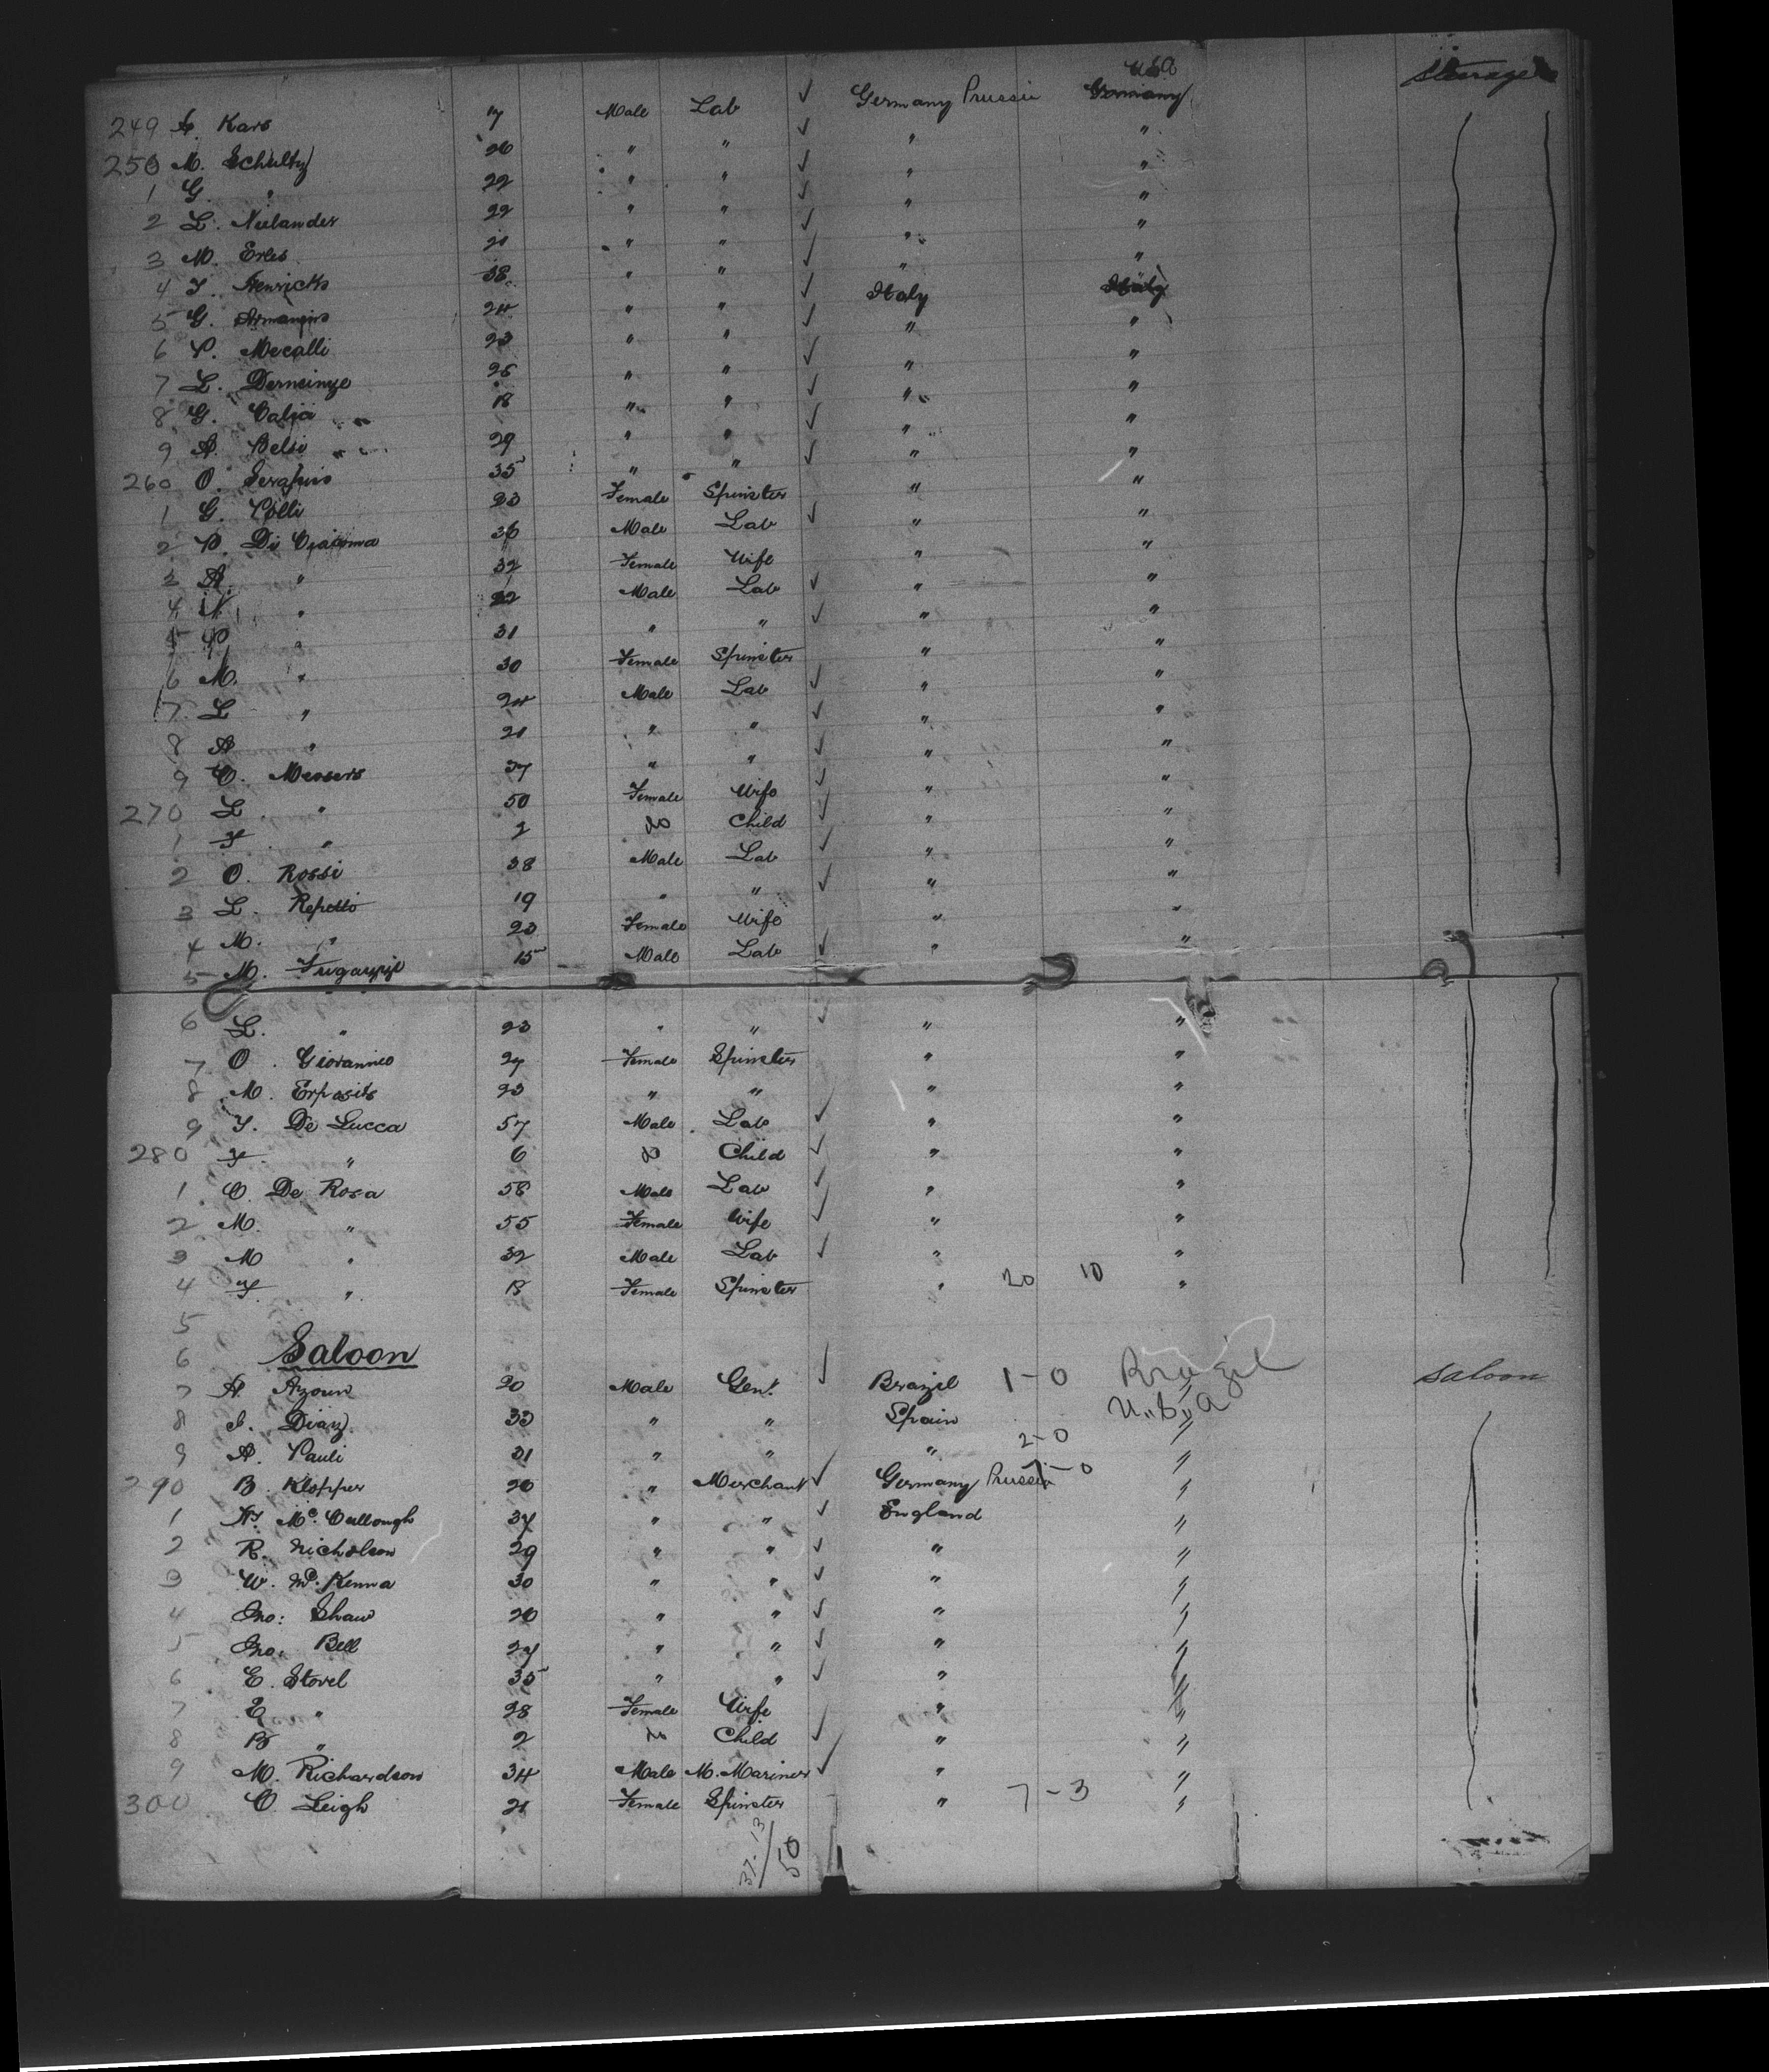 U.S.a
249 A. Kars 17 Male Lab ✓ Germany Prussia Germany Steerage
250 M. Schultz 26 " " ✓ " "
1 G. " 22 " " ✓ " "
2 L. Neelander 22 " " ✓ " "
3 M. Erles 21 " " ✓ " "
4 J. Henricks 38 " " ✓ " "
5 G. 24 " " ✓ Italy Italy
6 P. Mecalli 23 " " ✓ " "
7 L. 25 " " ✓ " "
8 G. Calja 18 " " ✓ " "
9 A. Belsi 29 " " ✓ " "
260 O. Serafino 35 " " ✓ " "
1 G. Polli 23 Female Spinster " "
2 P. Di Ciacoma 36 Male Lab ✓ " "
3 A. " 32 Female Wife " "
4 N. " 22 Male Lab ✓ " "
5 P. " 31 " " ✓ " "
6 M. " 30 Female Spinster " "
7 L " 24 Male Lab ✓ " "
8 A " 21 " " ✓ " "
9 C. Messers 37 " " ✓ " "
270 L. " 50 Female Wife ✓ " "
1 F. " 2 do Child ✓ " "
2 O. Rossi 38 Male Lab ✓ " "
3 L. Repetto 19 " " ✓ " "
4 M. " 23 Female Wife " "
5 M. 15 Male Lab ✓ " "
6 L. " 23 " " ✓ " "
7 O. Giovannio 27 Female Spinster " "
8 M. Erposits 23 " " " "
9 J. De Lucca 57 Male Lab ✓ " "
280 F. " 6 do Child ✓ " "
1 C. De Rosa 58 Male Lab ✓ " "
2 M. " 55 Female Wife ✓ " "
3 M " 32 Male Lab ✓ " "
4 F. " 18 Female Spinster " 20 10 "
5
6 Saloon
7 A. Azoun 20 Male Gent. ✓ Brazil 1-0 Brazil saloon
8 S. Diaz 33 " " Spain U.S.a "
9 A. Pauli 31 " " ✓ " 2-0 "
290 B. Klopper 20 " Merchant ✓ Germany Prussia 1-0 "
1 Wm. McCullough 37 " " ✓ England "
2 R. Nicholson 29 " " ✓ " "
3 W. McKenna 30 " " ✓ " "
4 Jno: Shaw 20 " " ✓ " "
5 Jno. Bell 27 " " ✓ " "
6 E. Storel 35 " " ✓ " "
7 E " 28 Female Wife ✓ " "
8 B " 2 do Child ✓ " "
9 M. Richardson 34 Male M. Mariner ✓ " "
300 C. Leigh 21 Female Spinster " 7-3 "
37.13/50